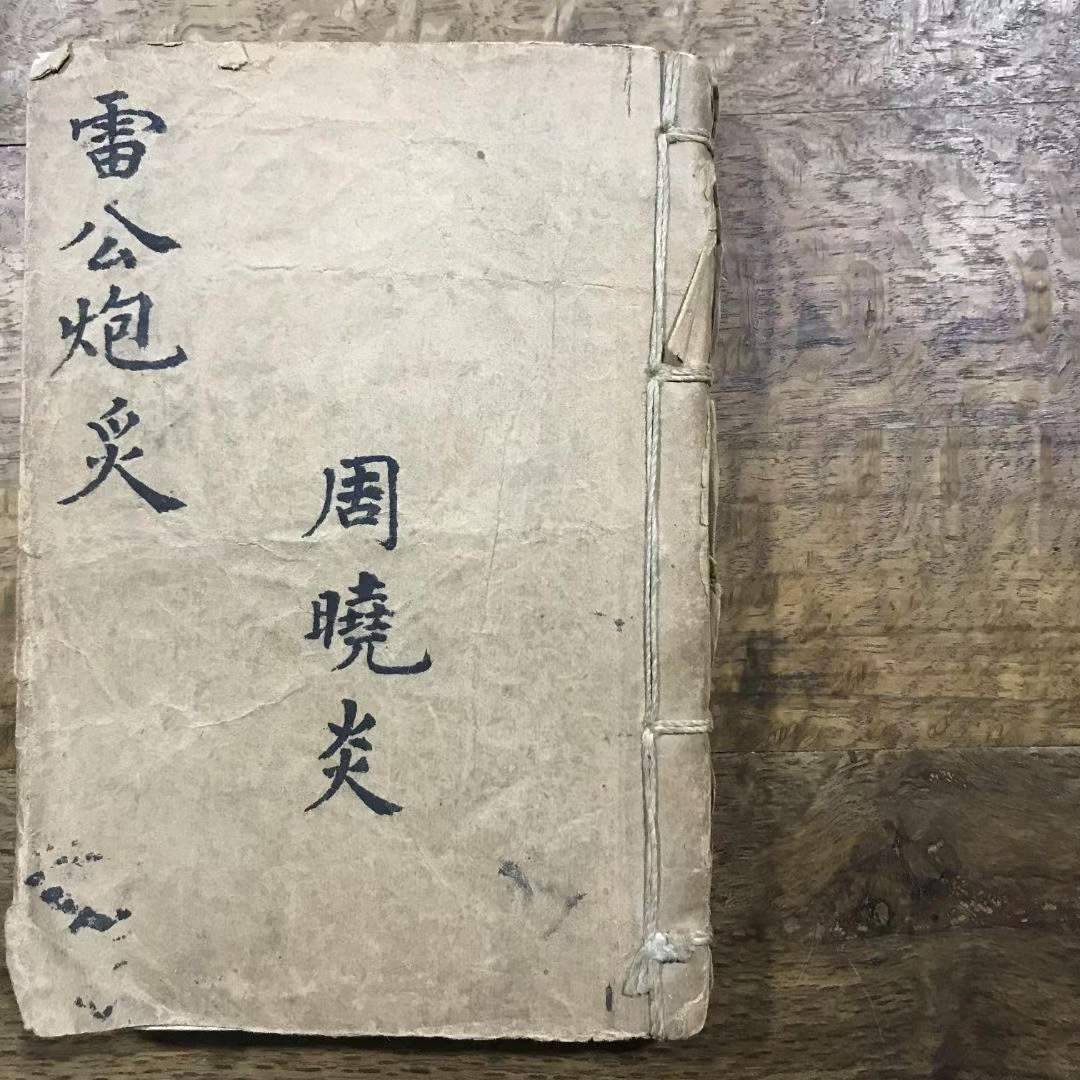 雷公炮炙
周曉炎